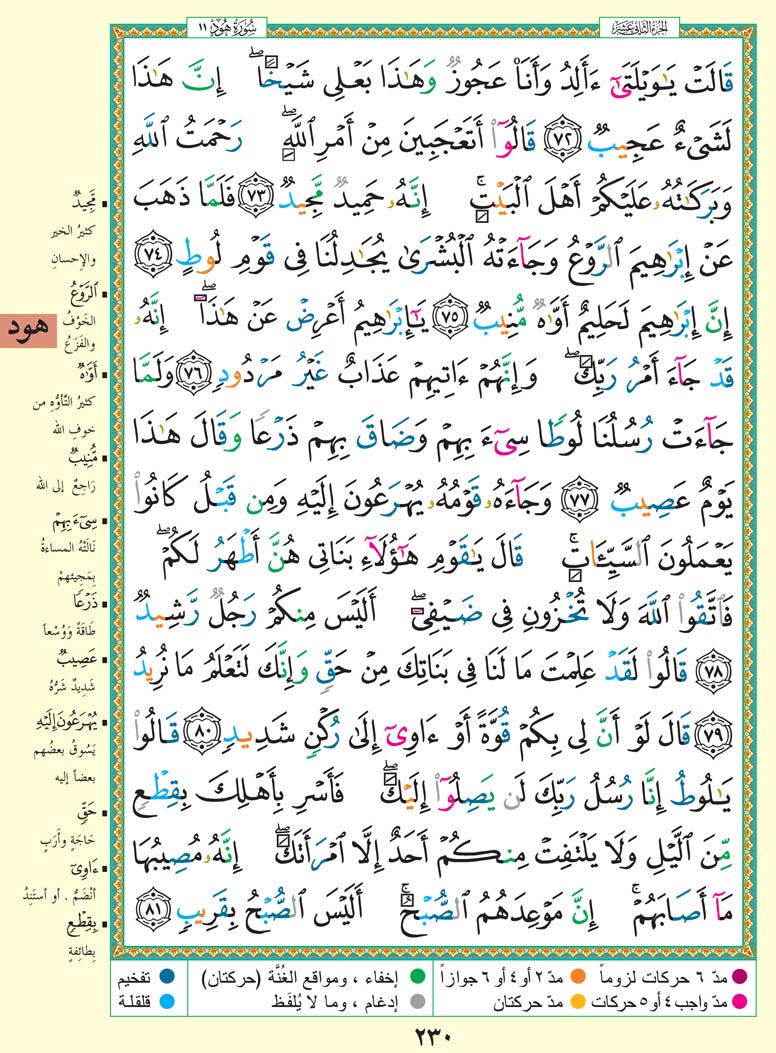 سُورَةُ هُودٍ ١١
الجُزءُ الثَّانِي عَشَرَ
قَالَتْ يَٰوَيْلَتَىٰٓ ءَأَلِدُ وَأَنَا۠ عَجُوزٌ وَهَٰذَا بَعْلِى شَيْخًا ۖ إِنَّ هَٰذَا
لَشَىْءٌ عَجِيبٌ ٧٢ قَالُوٓا۟ أَتَعْجَبِينَ مِنْ أَمْرِ ٱللَّهِ ۖ رَحْمَتُ ٱللَّهِ
وَبَرَكَٰتُهُۥ عَلَيْكُمْ أَهْلَ ٱلْبَيْتِ ۚ إِنَّهُۥ حَمِيدٌ مَّجِيدٌ ٧٣ فَلَمَّا ذَهَبَ
عَنْ إِبْرَٰهِيمَ ٱلرَّوْعُ وَجَآءَتْهُ ٱلْبُشْرَىٰ يُجَٰدِلُنَا فِى قَوْمِ لُوطٍ ٧٤
إِنَّ إِبْرَٰهِيمَ لَحَلِيمٌ أَوَّٰهٌ مُّنِيبٌ ٧٥ يَٰٓإِبْرَٰهِيمُ أَعْرِضْ عَنْ هَٰذَآ ۖ إِنَّهُۥ
قَدْ جَآءَ أَمْرُ رَبِّكَ ۖ وَإِنَّهُمْ ءَاتِيهِمْ عَذَابٌ غَيْرُ مَرْدُودٍ ٧٦ وَلَمَّا
جَآءَتْ رُسُلُنَا لُوطًا سِىٓءَ بِهِمْ وَضَاقَ بِهِمْ ذَرْعًا وَقَالَ هَٰذَا
يَوْمٌ عَصِيبٌ ٧٧ وَجَآءَهُۥ قَوْمُهُۥ يُهْرَعُونَ إِلَيْهِ وَمِن قَبْلُ كَانُوا۟
يَعْمَلُونَ ٱلسَّيِّـَٔاتِ ۚ قَالَ يَٰقَوْمِ هَٰٓؤُلَآءِ بَنَاتِى هُنَّ أَطْهَرُ لَكُمْ ۖ
فَٱتَّقُوا۟ ٱللَّهَ وَلَا تُخْزُونِ فِى ضَيْفِىٓ ۖ أَلَيْسَ مِنكُمْ رَجُلٌ رَّشِيدٌ
٧٨ قَالُوا۟ لَقَدْ عَلِمْتَ مَا لَنَا فِى بَنَاتِكَ مِنْ حَقٍّ وَإِنَّكَ لَتَعْلَمُ مَا نُرِيدُ
٧٩ قَالَ لَوْ أَنَّ لِى بِكُمْ قُوَّةً أَوْ ءَاوِىٓ إِلَىٰ رُكْنٍ شَدِيدٍ ٨٠ قَالُوا۟
يَٰلُوطُ إِنَّا رُسُلُ رَبِّكَ لَن يَصِلُوٓا۟ إِلَيْكَ ۖ فَأَسْرِ بِأَهْلِكَ بِقِطْعٍ
مِّنَ ٱلَّيْلِ وَلَا يَلْتَفِتْ مِنكُمْ أَحَدٌ إِلَّا ٱمْرَأَتَكَ ۖ إِنَّهُۥ مُصِيبُهَا
مَآ أَصَابَهُمْ ۚ إِنَّ مَوْعِدَهُمُ ٱلصُّبْحُ ۚ أَلَيْسَ ٱلصُّبْحُ بِقَرِيبٍ ٨١
مَّجِيدٌ
كثيرُ الخير
والإحسانِ
ٱلرَّوْعُ
الخَوْفُ
والفَزَعُ
هود
أَوَّٰهٌ
كثيرُ التَّأوُّهِ من
خوفِ الله
مُّنِيبٌ
رَاجِعٌ إلى الله
سِىٓءَ بِهِمْ
نَالَتْهُ المساءةُ
بِمَجِيئهمْ
ذَرْعًا
طَاقَةً وَوُسْعاً
عَصِيبٌ
شَدِيدٌ شَرُّهُ
يُهْرَعُونَ إِلَيْهِ
يَسُوقُ بعضُهم
بعضاً إليه
حَقٍّ
حَاجَةٍ وأَرَبٍ
ءَاوِىٓ
أنْضَمُّ . أو أستَنِدُ
بِقِطْعٍ
بِطائِفةٍ
مدّ ٦ حركات لزوماً
مدّ ٢ أو ٤ أو ٦ جوازاً
إخفاء ، ومواقع الغُنَّة (حركتان)
تفخيم
مدّ واجب ٤ أو ٥ حركات
مدّ حركتان
إدغام ، وما لا يُلفَظ
قلقلة
٢٣٠